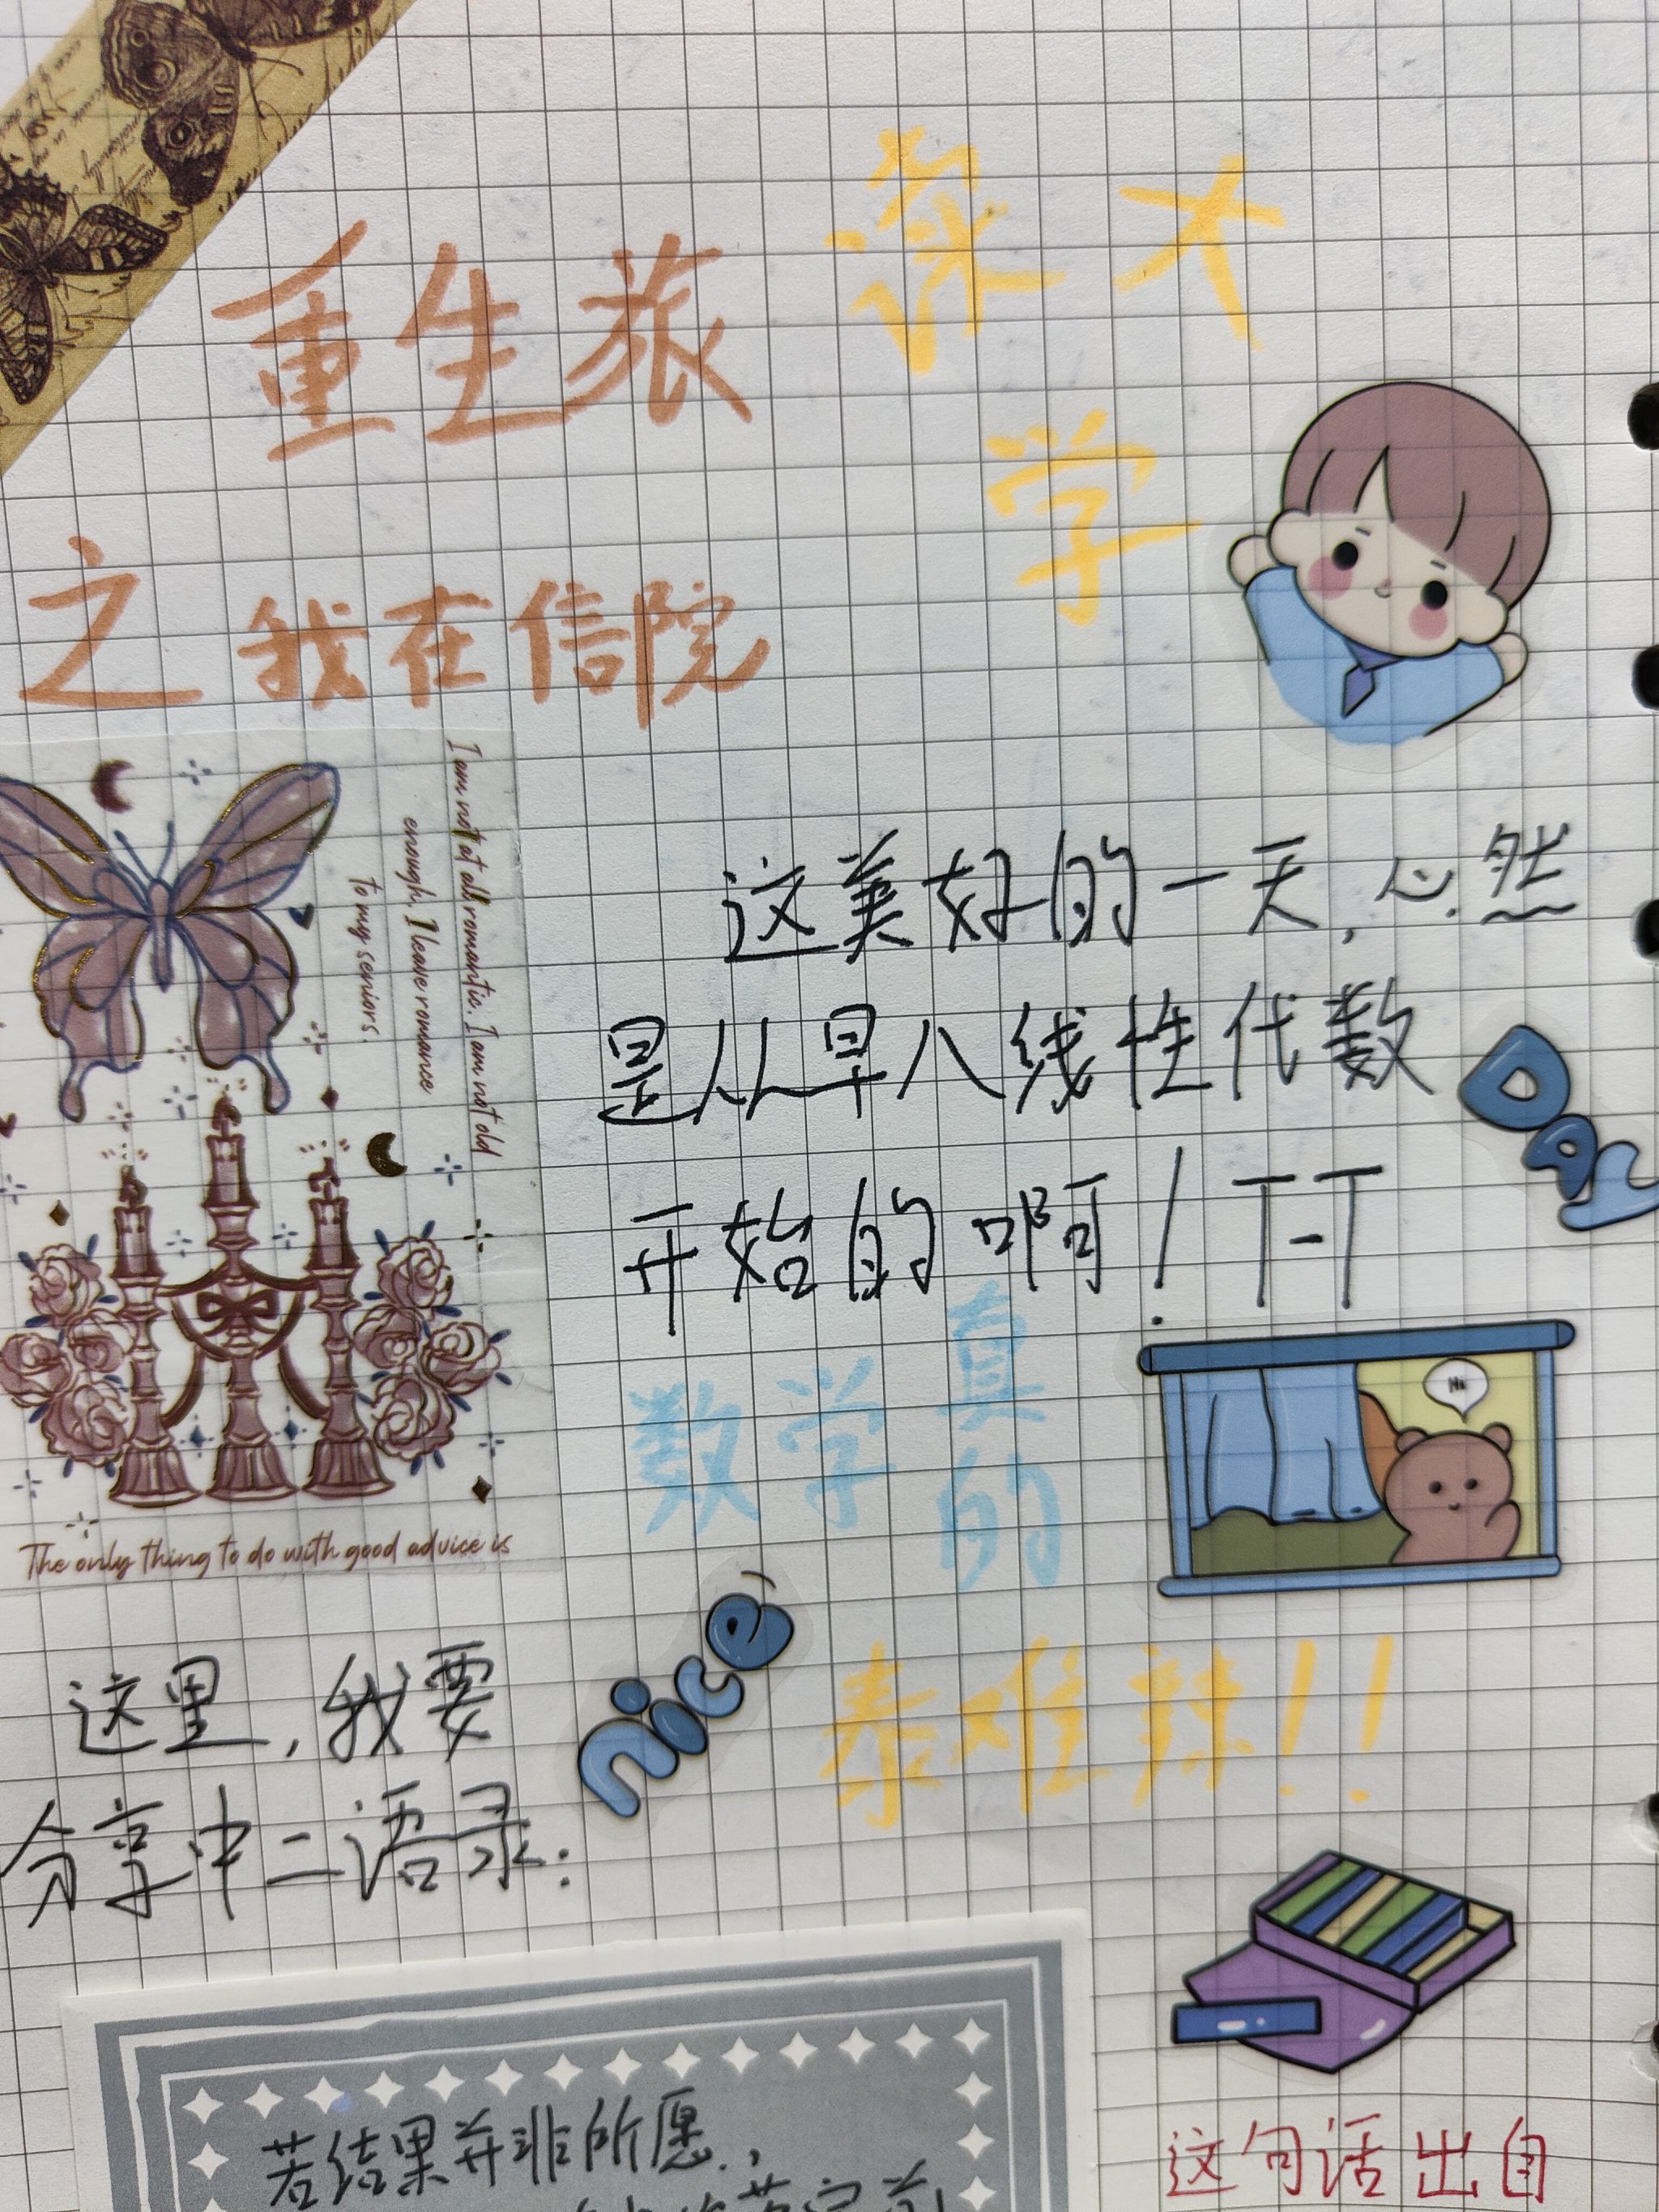 重生旅
之我在信院
读大
学
I am not at all romantic. I am not old
enough. I leave romance
to my seniors.
这美好的一天，必然
是从早八线性代数
开始的啊！T-T
Day
数学真
的
Hi
The only thing to do with good advice is
nice
泰难辣！！
这里，我要
分享中二语录：
若结果并非所愿，
这句话出自